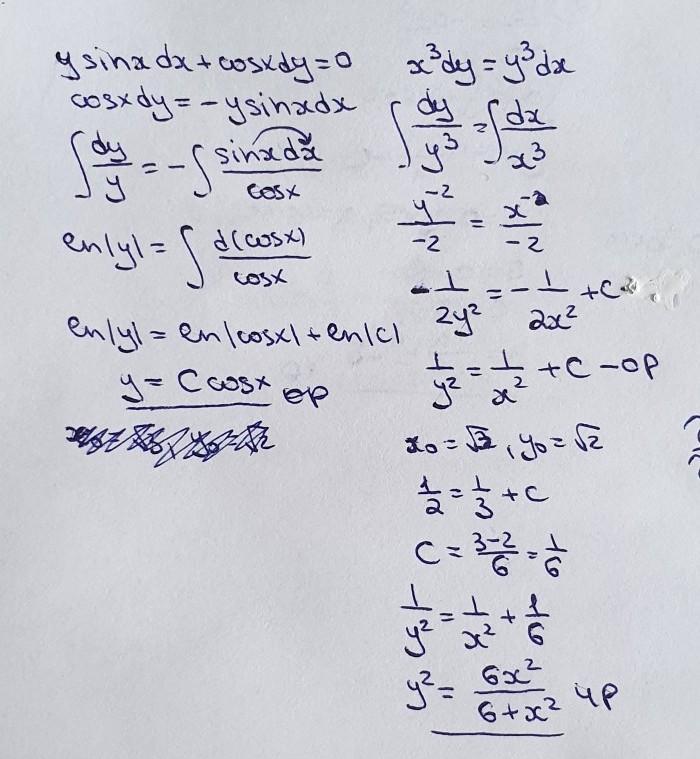 y sinx dx + cosx dy = 0
cosx dy = - y sinx dx
∫ dy/y = - ∫ sinx dx / cosx
ln|y| = ∫ d(cosx) / cosx
ln|y| = ln|cosx| + ln|c|
y = C cosx ор
x³dy = y³dx
∫ dy/y³ = ∫ dx/x³
y⁻²/-2 = x⁻²/-2
- 1/2y² = - 1/2x² + C
1/y² = 1/x² + C - ор
x₀ = √3, y₀ = √2
1/2 = 1/3 + C
C = 3-2/6 = 1/6
1/y² = 1/x² + 1/6
y² = 6x²/6+x² чр